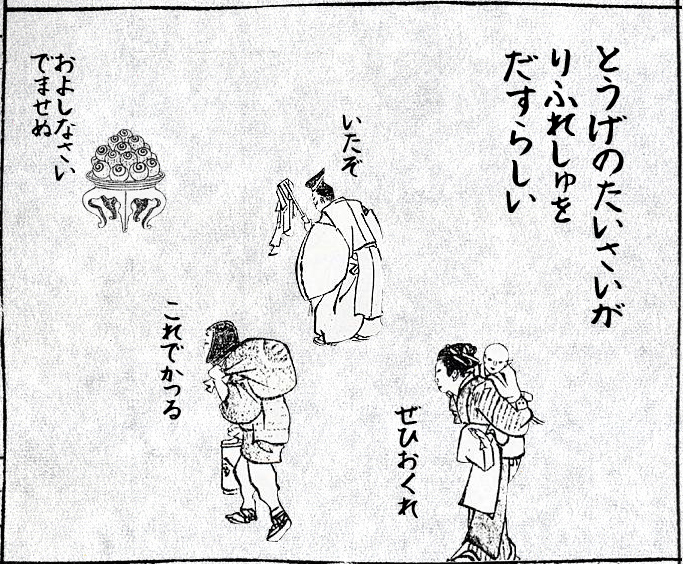 とうげのたいさいが
りふれしゅを
だすらしい
いたぞ
ぜひおくれ
これでかつる
およしなさい
でませぬ